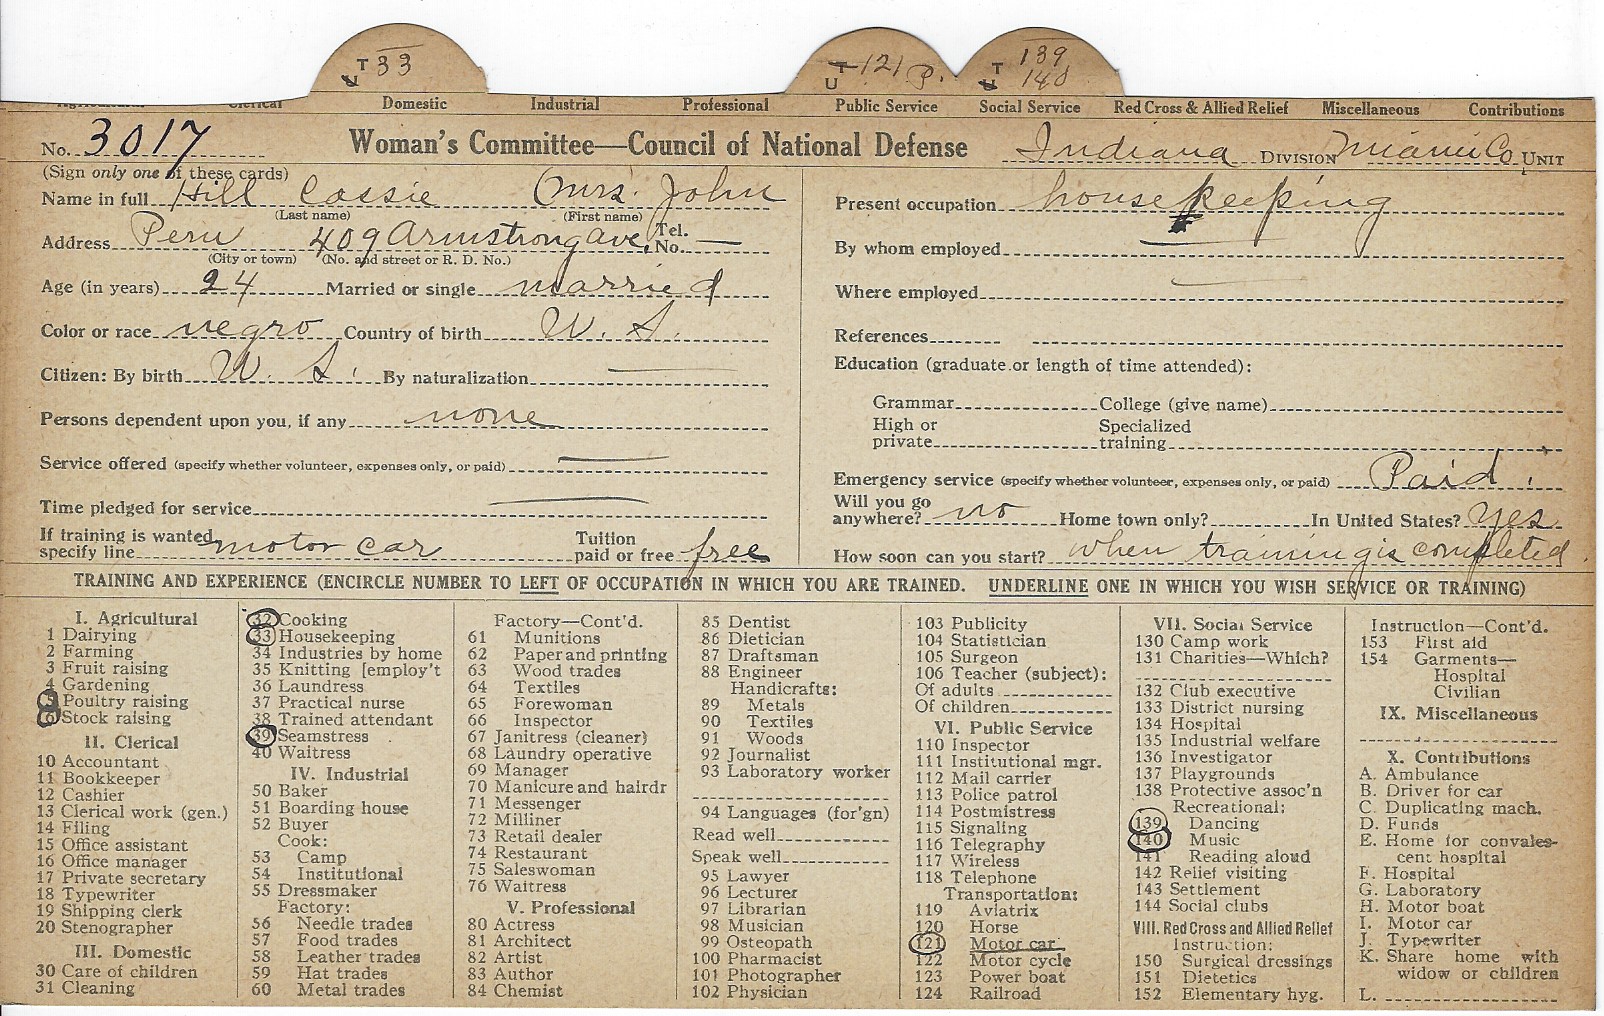 T 33
U
T 121 P.
U
T 139
U 140
Domestic Industrial Professional Public Service Social Service Red Cross & Allied Relief Miscellaneous Contributions
No. 3017 Woman's Committee—Council of National Defense Indiana DIVISION Miami Co UNIT
(Sign only one of these cards)
Name in full Hill Cassie (Mrs. John
(Last name) (First name)
Address Peru 409 Armstrong Ave, Tel. No. —
(City or town) (No. and street or R. D. No.)
Age (in years) 24 Married or single married
Color or race negro Country of birth U. S.
Citizen: By birth U. S. By naturalization —
Persons dependent upon you, if any none
Service offered (specify whether volunteer, expenses only, or paid) —
Time pledged for service —
If training is wanted
specify line motor car Tuition paid or free free
Present occupation housekeeping
By whom employed —
Where employed —
References
Education (graduate or length of time attended):
Grammar College (give name)
High or private Specialized training
Emergency service (specify whether volunteer, expenses only, or paid) Paid.
Will you go anywhere? no Home town only? In United States? Yes.
How soon can you start? when training is completed
TRAINING AND EXPERIENCE (ENCIRCLE NUMBER TO LEFT OF OCCUPATION IN WHICH YOU ARE TRAINED. UNDERLINE ONE IN WHICH YOU WISH SERVICE OR TRAINING)
I. Agricultural
1 Dairying
2 Farming
3 Fruit raising
4 Gardening
5 Poultry raising
6 Stock raising
II. Clerical
10 Accountant
11 Bookkeeper
12 Cashier
13 Clerical work (gen.)
14 Filing
15 Office assistant
16 Office manager
17 Private secretary
18 Typewriter
19 Shipping clerk
20 Stenographer
III. Domestic
30 Care of children
31 Cleaning
32 Cooking
33 Housekeeping
34 Industries by home
35 Knitting [employ't
36 Laundress
37 Practical nurse
38 Trained attendant
39 Seamstress
40 Waitress
IV. Industrial
50 Baker
51 Boarding house
52 Buyer
Cook:
53 Camp
54 Institutional
55 Dressmaker
Factory:
56 Needle trades
57 Food trades
58 Leather trades
59 Hat trades
60 Metal trades
Factory—Cont'd.
61 Munitions
62 Paper and printing
63 Wood trades
64 Textiles
65 Forewoman
66 Inspector
67 Janitress (cleaner)
68 Laundry operative
69 Manager
70 Manicure and hairdr
71 Messenger
72 Milliner
73 Retail dealer
74 Restaurant
75 Saleswoman
76 Waitress
V. Professional
80 Actress
81 Architect
82 Artist
83 Author
84 Chemist
85 Dentist
86 Dietician
87 Draftsman
88 Engineer
Handicrafts:
89 Metals
90 Textiles
91 Woods
92 Journalist
93 Laboratory worker
94 Languages (for'gn)
Read well
Speak well
95 Lawyer
96 Lecturer
97 Librarian
98 Musician
99 Osteopath
100 Pharmacist
101 Photographer
102 Physician
103 Publicity
104 Statistician
105 Surgeon
106 Teacher (subject):
Of adults
Of children
VI. Public Service
110 Inspector
111 Institutional mgr.
112 Mail carrier
113 Police patrol
114 Postmistress
115 Signaling
116 Telegraphy
117 Wireless
118 Telephone
Transportation:
119 Aviatrix
120 Horse
121 Motor car
122 Motor cycle
123 Power boat
124 Railroad
VII. Social Service
130 Camp work
131 Charities—Which?
132 Club executive
133 District nursing
134 Hospital
135 Industrial welfare
136 Investigator
137 Playgrounds
138 Protective assoc'n
Recreational:
139 Dancing
140 Music
141 Reading aloud
142 Relief visiting
143 Settlement
144 Social clubs
VIII. Red Cross and Allied Relief
Instruction:
150 Surgical dressings
151 Dietetics
152 Elementary hyg.
Instruction—Cont'd.
153 First aid
154 Garments—
Hospital
Civilian
IX. Miscellaneous
X. Contributions
A. Ambulance
B. Driver for car
C. Duplicating mach.
D. Funds
E. Home for convales-
cent hospital
F. Hospital
G. Laboratory
H. Motor boat
I. Motor car
J. Typewriter
K. Share home with
widow or children
L.